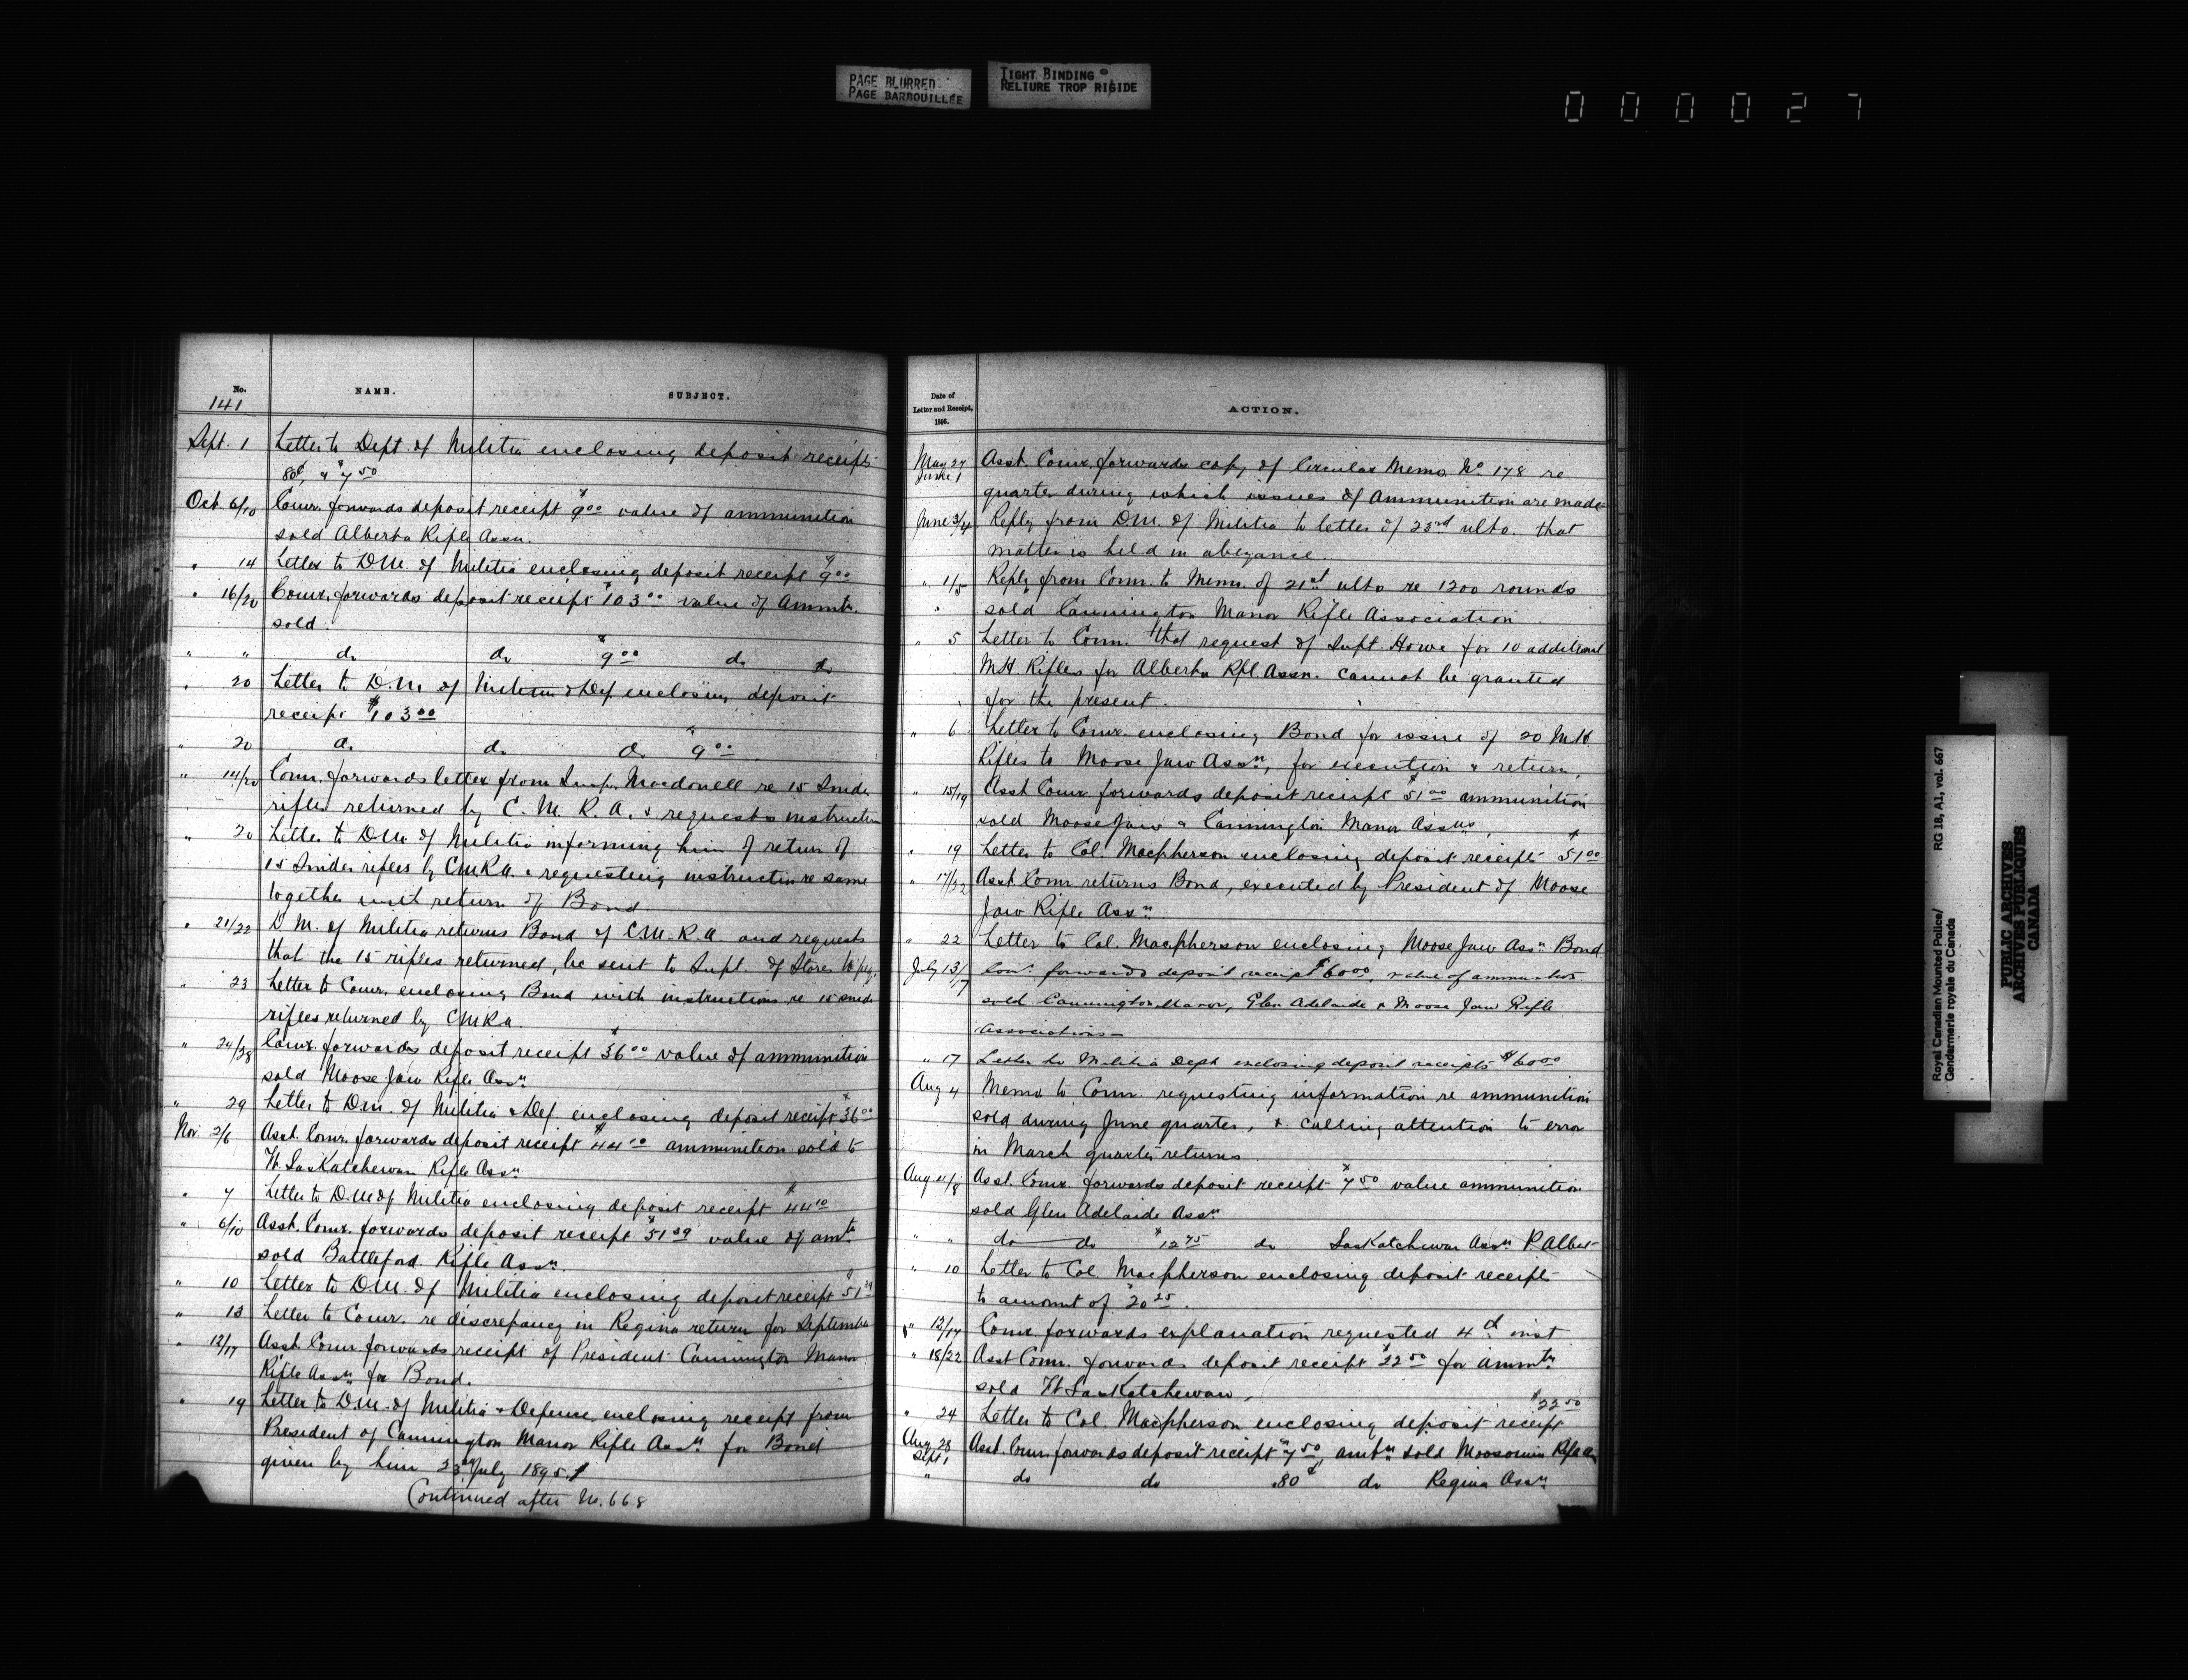 PAGE BLURRED
PAGE BARBOUILLÉE
TIGHT BINDING
RELIURE TROP RIGIDE
000027
No. NAME. SUBJECT.
141
Sept. 1 Letter to Dept. of Militia enclosing deposit receipts
80¢, & $7.50
Oct. 6/10 Comr. forwards deposit receipt $9.00 value of ammunition
sold Alberta Rifle Assn.
" 14 Letter to D.M. of Militia enclosing deposit receipt $9.00
" 16/20 Comr. forwards deposit receipt $103.00 value of Ammtn.
sold.
" " do do $9.00 do do
" 20 Letter to D.M. of Militia & Def. enclosing deposit
receipt $103.00
" 20 do do do $9.00
" 14/20 Comr. forwards letter from Insp. Macdonell re 15 Snider
rifles returned by C.M.R.A. & requests instruction
" 20 Letter to D.M. of Militia informing him of return of
15 Snider rifles by CMRA. & requesting instruction re same
together with return of Bond
" 21/22 D.M. of Militia returns Bond of C.M.R.A. and requests
that the 15 rifles returned, be sent to Supt. of Stores Wpeg.
" 23 Letter to Comr. enclosing Bond with instructions re 15 snider
rifles returned by CMRA.
" 24/28 Comr. forwards deposit receipt $36.00 value of ammunition
sold Moose Jaw Rifle Assn.
" 29 Letter to D.M. of Militia & Def. enclosing deposit receipt $36.00
Nov. 2/6 Asst. Comr. forwards deposit receipt $44.10 ammunition sold to
N. Saskatchewan Rifle Assn
" 7 Letter to D.M. of Militia enclosing deposit receipt $44.10
" 6/10 Asst. Comr. forwards deposit receipt $51.39 value of amtn
sold Battleford Rifle Assn.
" 10 Letter to D.M. of Militia enclosing deposit receipt $51.39
" 13 Letter to Comr. re discrepancy in Regina return for September
" 12/17 Asst. Comr. forwards receipt of President Cannington Manor
Rifle Assn for Bond.
" 19 Letter to D.M. of Militia & Defence enclosing receipt from
President of Cannington Manor Rifle Assn for Bond
given by him 23rd July 1895.
Continued after No. 668
Date of
Letter and Receipt,
1896.
ACTION.
May 27
June 1 Asst. Comr. forwards copy of Circular Memo No. 178 re
quarter during which issues of Ammunition are made
June 3/4 Reply from D.M. of Militia to letter of 23rd ulto. that
matter is held in abeyance.
" 1/5 Reply from Comr. to Memo. of 21st ulto re 1200 rounds
" sold Cannington Manor Rifle Association
" 5 Letter to Comr. that request of Supt. Howe for 10 additional
M.H. Rifles for Alberta Rfl. Assn. cannot be granted
for the present.
" 6 Letter to Comr. enclosing Bond for issue of 20 M.H.
Rifles to Moose Jaw Assn, for execution & return.
" 15/19 Asst Comr forwards deposit receipt $51.00 ammunition
sold Moose Jaw & Cannington Manor Assns,
" 19 Letter to Col. Macpherson enclosing deposit receipt $51.00
" 17/22 Asst Comr returns Bond, executed by President of Moose
Jaw Rifle Assn
" 22 Letter to Col. Macpherson enclosing Moose Jaw Assn Bond
July 13/17 Comr. forwards deposit receipt $60.00, value of ammunition
sold Cannington Manor, Glen Adelaide & Moose Jaw Rifle
Associations
" 17 Letter to Militia Dept enclosing deposit receipts $60.00
Aug 4 Memo. to Comr. requesting information re ammunition
sold during June quarter, & calling attention to error
in March quarter returns.
Aug 4/8 Asst. Comr. forwards deposit receipt $7.50 value ammunition
sold Glen Adelaide Assn
" " do do $12.75 do Saskatchewan Assn P. Albert
" 10 Letter to Col. Macpherson enclosing deposit receipts
to amount of $20.25.
" 12/14 Comr. forwards explanation requested 4th inst
" 18/22 Asst Comr. forwards deposit receipt $22.50 for ammtn
sold N. Saskatchewan,
" 24 Letter to Col. Macpherson enclosing deposit receipt $22.50
Aug 28
Sept 1 Asst. Comr. forwards deposit receipt $7.50, amtn sold Moosomin Rfl. A.
" do do .80¢ do Regina Assn
Royal Canadian Mounted Police/
Gendarmerie royale du Canada
RG 18, A1, vol. 667
PUBLIC ARCHIVES
ARCHIVES PUBLIQUES
CANADA